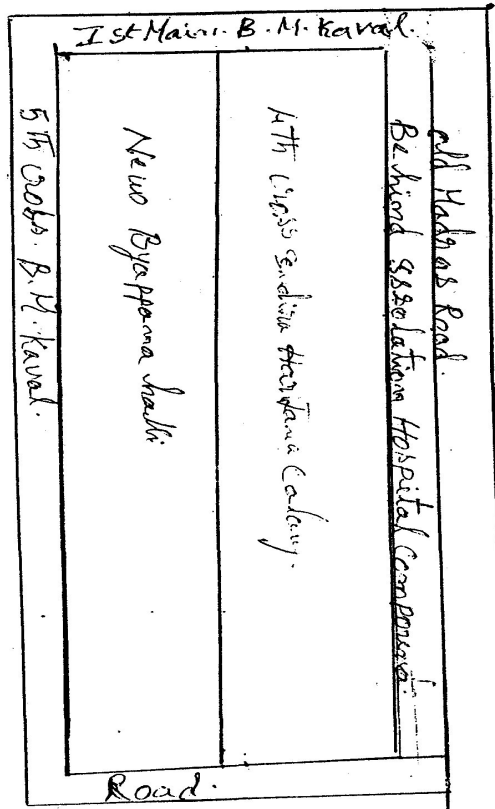 Ist Main. B.M. Kaval.
old Madras Road.
Behind Issolation Hospital Compound.
4th Cross Indira Harijana Colany.
New Byappanna halli
5th Cross. B.M. Kaval.
Road.